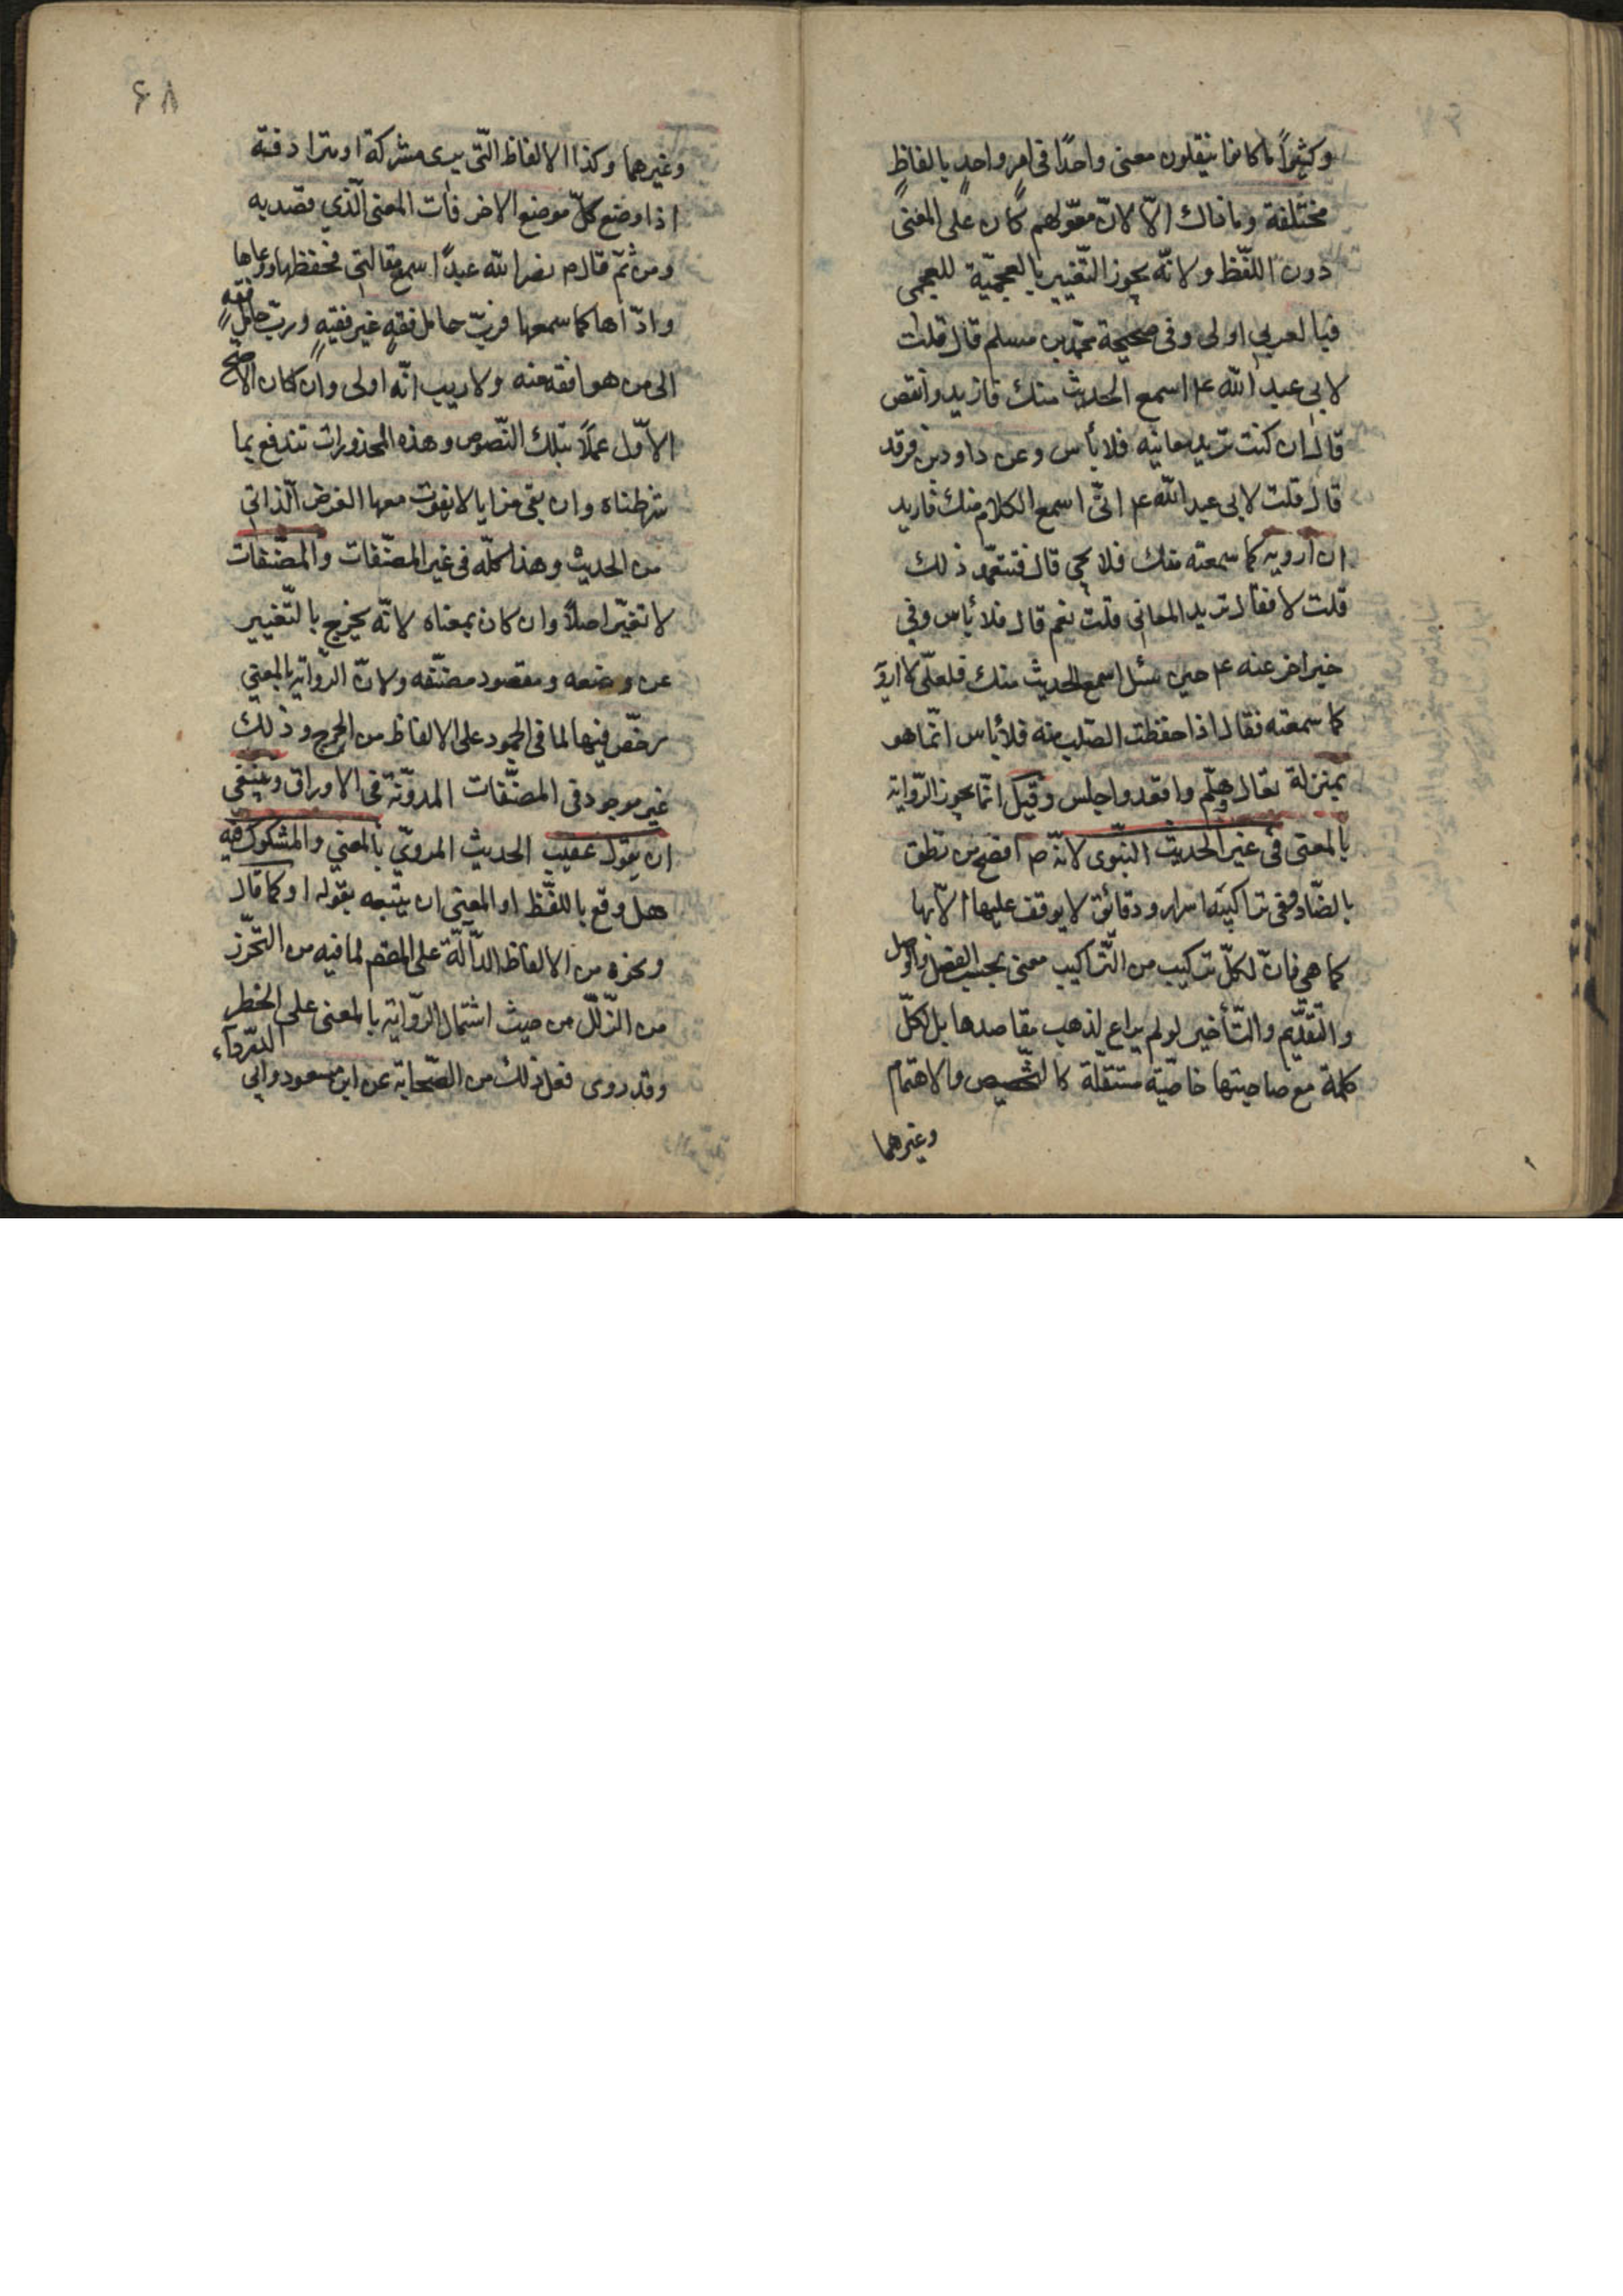 وكثيراً ما كانوا ينقلون معنى واحدًا في امرٍ واحدٍ بالفاظٍ
مختلفة وما ذاك الّا لانّ معوّلهم كان على المعنى
دون اللّفظ ولانّه يجوز التّغيير بالعجميّة للعجمى
فبالعربي اولى وفى صحيحة محمّد بن مسلم قال قلت
لابى عبد الله ع اسمع الحديث منك فازيد وانقص
قال ان كنت تريد معانيه فلا بأس وعن داود بن فرقد
قال قلت لابى عبد الله ع انّى اسمع الكلام منك فاريد
ان ارويه كما سمعته منك فلا يجي قال فتتعمّد ذلك
قلت لا فقال تريد المعانى قلت نعم قال فلا بأس وفي
خبر اخر عنه ع حين سئل اسمع الحديث منك فلعلّى لا اروي
كما سمعته فقال اذا حفظت الصّلب منه فلا بأس انّما هو
بمنزلة تعال وهلّم واقعد واجلس وقيل انّما يجوز الرّواية
بالمعنى فى غير الحديث النّبوى لانّه ص افصح من نطق
بالضّاد وفى تراكيبه اسرار ودقائق لا يوقف عليها الّا بها
كما هي فانّ لكلّ تركيب من التّراكيب معنى بحسب الفصل والوصل
والتّقديم والتّأخير لو لم يراع لذهب مقاصدها بل لكلّ
كلمة مع صاحبتها خاصّية مستقلّة كالتّخصيص والاهتمام
وغيرهما
۶۸
وغيرهما وكذا الالفاظ الّتى يرى مشركة او مترادفة
اذا وضع كلّ موضع الاخر فات المعنى الّذي قصد به
ومن ثمّ قال ص نضر الله عبدًا سمع مقالتي فحفظها ووعاها
وادّاها كما سمعها فربّ حامل فقهٍ غير فقيهٍ وربّ حامل فقه
الى من هو افقه منه ولا ريب انّه اولى وان كان الاصحّ
الاوّل عملًا بتلك النّصوص وهذه المحذورات تندفع بما
شرطناه وان بقى مزايا لا يفوت معها الغرض الّذاتي
من الحديث وهذا كلّه فى غير المصنّفات والمصنّفات
لا تغيّر اصلاً وان كان بمعناه لانّه يخرج بالتّغيير
عن وضعه ومقصود مصنّفه ولانّ الرّواية بالمعنى
رخّص فيها لما فى الجمود على الالفاظ من الحرج وذلك
غير موجود فى المصنّفات المدوّنة فى الاوراق وينبغى
ان يقول عقيب الحديث المرويّ بالمعنى والمشكوك فيه
هل وقع باللفّظ او المعنى ان يتبعه بقوله او كما قال
ونحوه من الالفاظ الدّالّة على المقصم لما فيه من التّحرّز
من الزّلل من حيث اشتمال الرّواية بالمعنى على الخطر
وقد روى فعل ذلك من الصّحابة عن ابن مسعود وابى الدّرداء